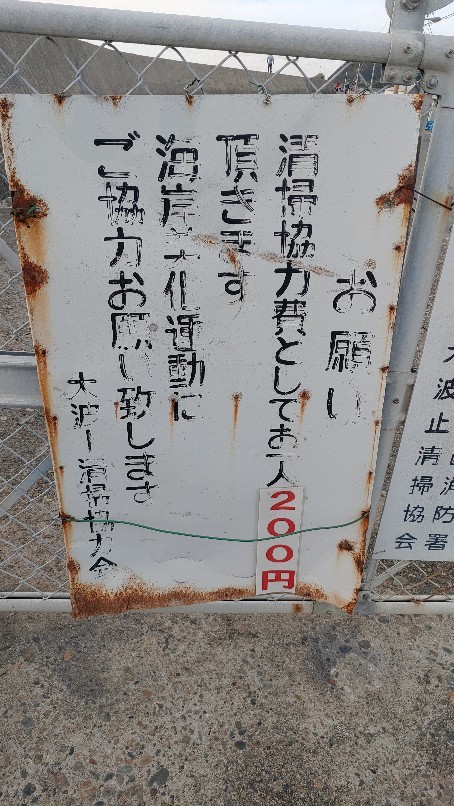 お願い
清掃協力費としてお一人200円
頂きます
海岸美化運動に
ご協力お願い致します
大波止清掃協力会
大波止清掃協会
防署